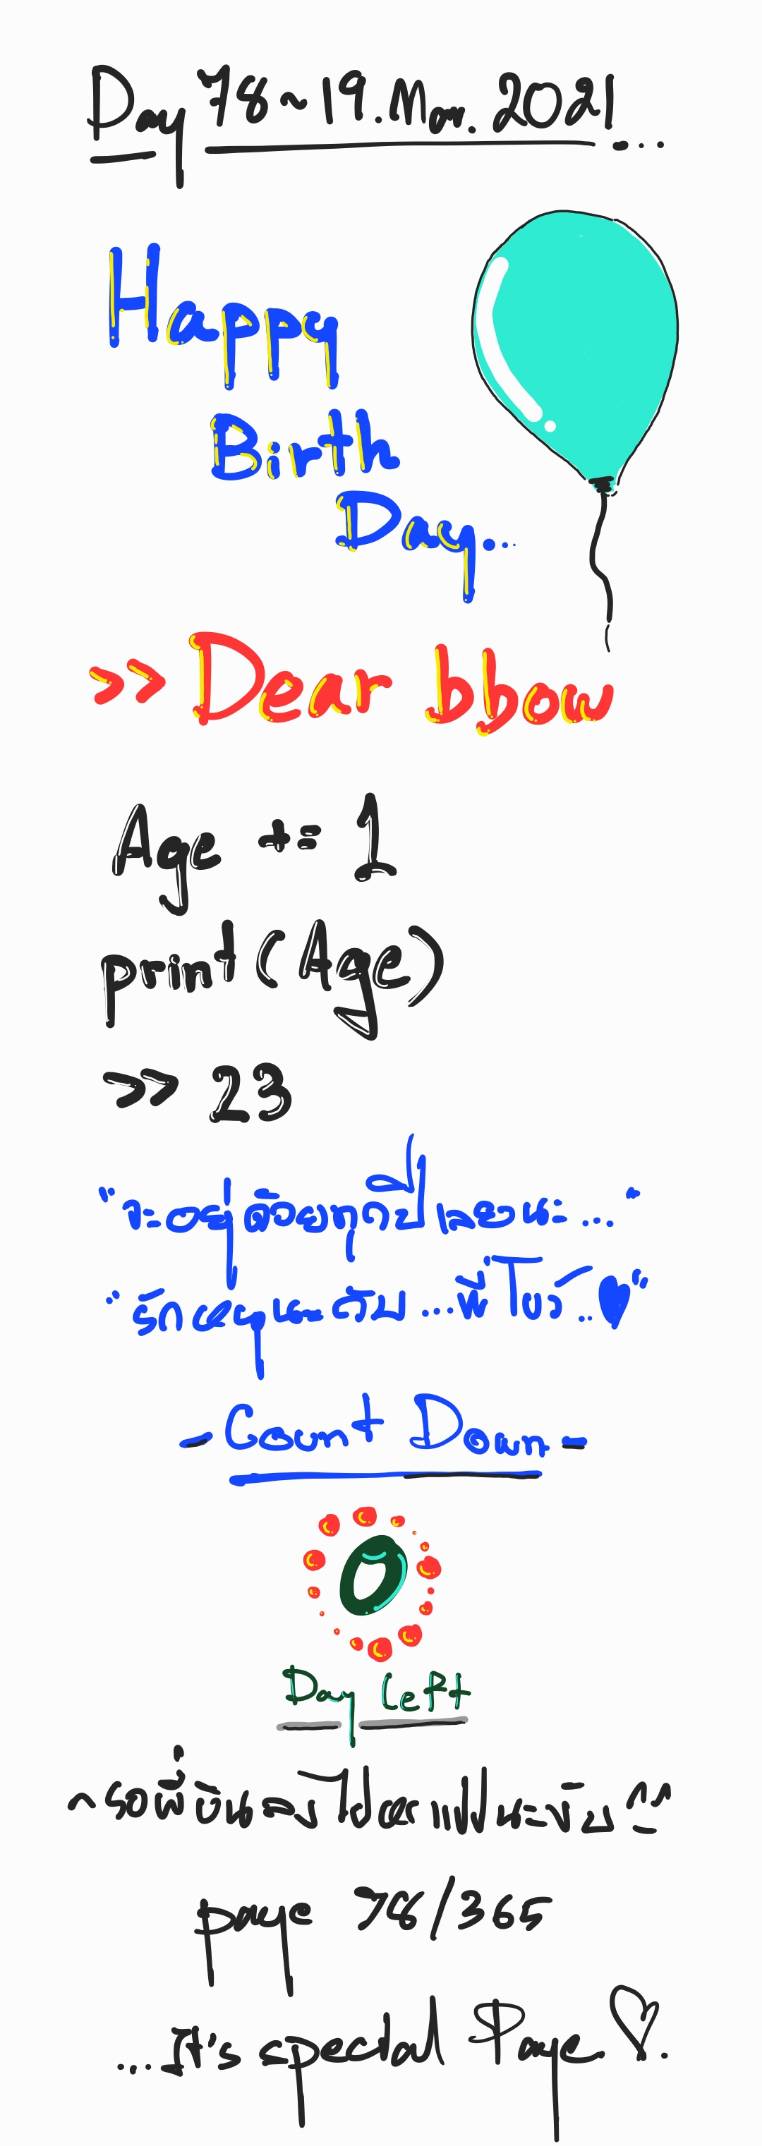 Day 78~19.Mar.2021...
Happy
Birth
Day...
>> Dear bbow
Age += 1
print(Age)
>> 23
"จะอยู่ด้วยทุกปีเลยนะ..."
"รักหนูนะคับ...พี่โบว์..♥"
- Count Down -
0
Day Left
~รอพี่บินลงไปหาแปปนะงับ ^^
page 78/365
...It's special Page ♡.